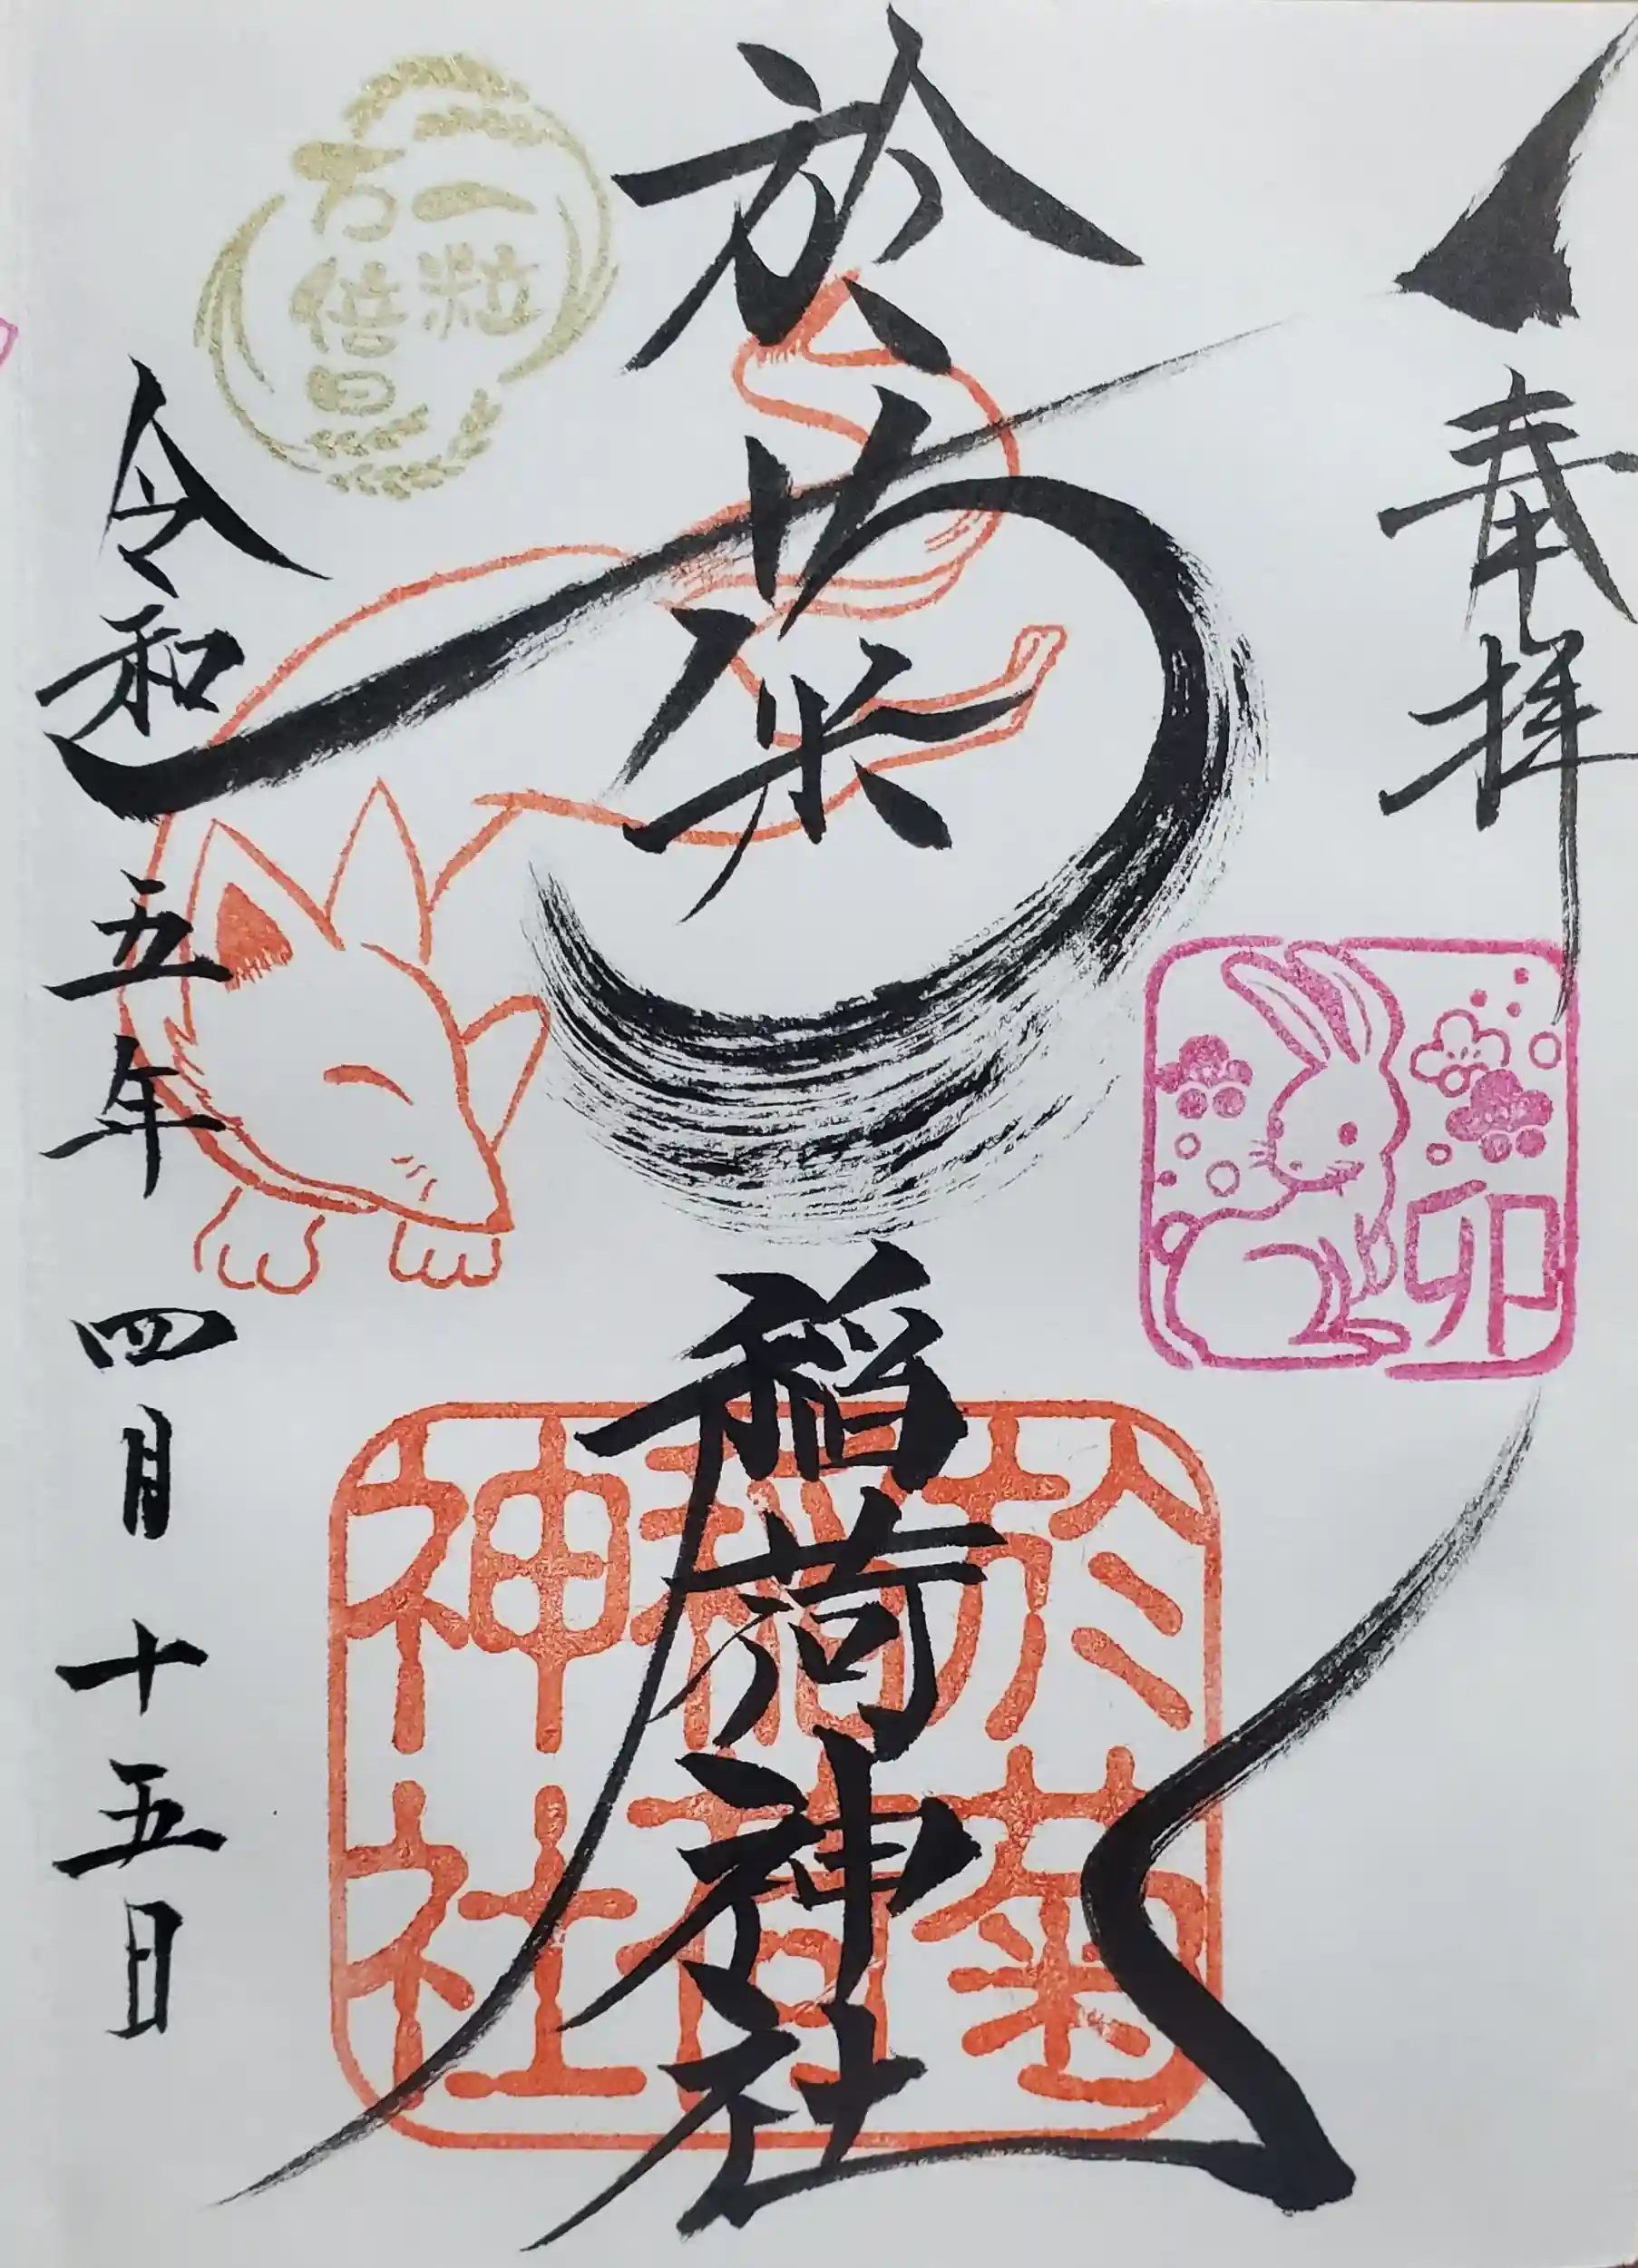 奉拝
卯
於菊稲荷神社
於菊
稲荷
神社
一粒
万倍日
令和五年四月十五日